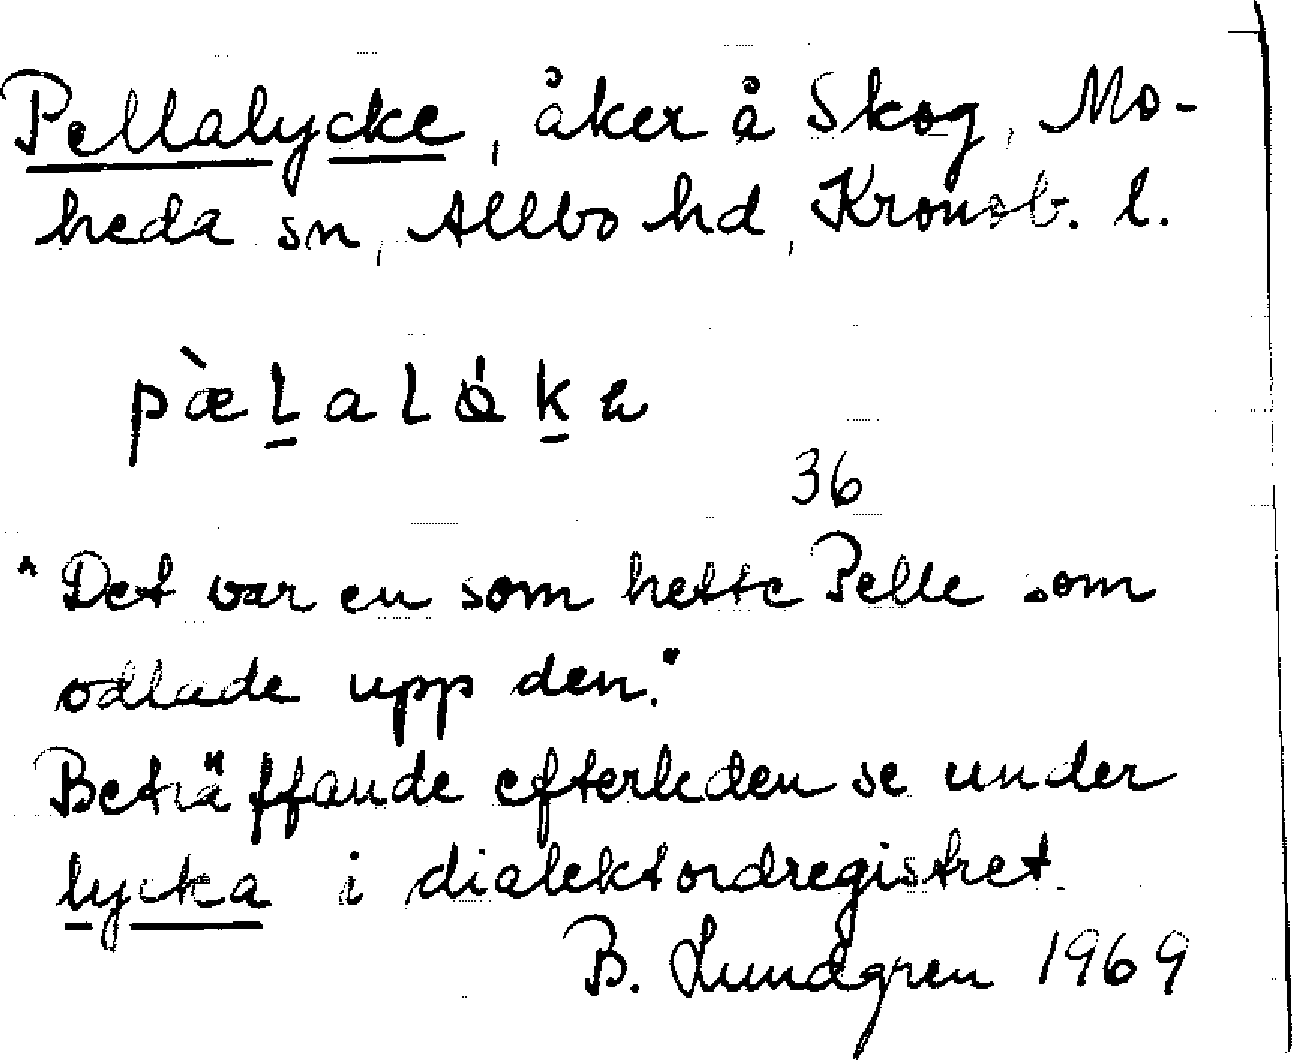 Pellalycke, åker å Skog, Mo-
heda sn, Allbo hd, Kronob. l.
36
"Det var en som hette Pelle som
odlade upp den."
Beträffande efterleden se under
lycka i dialektordregistret.
B. Lundgren 1969